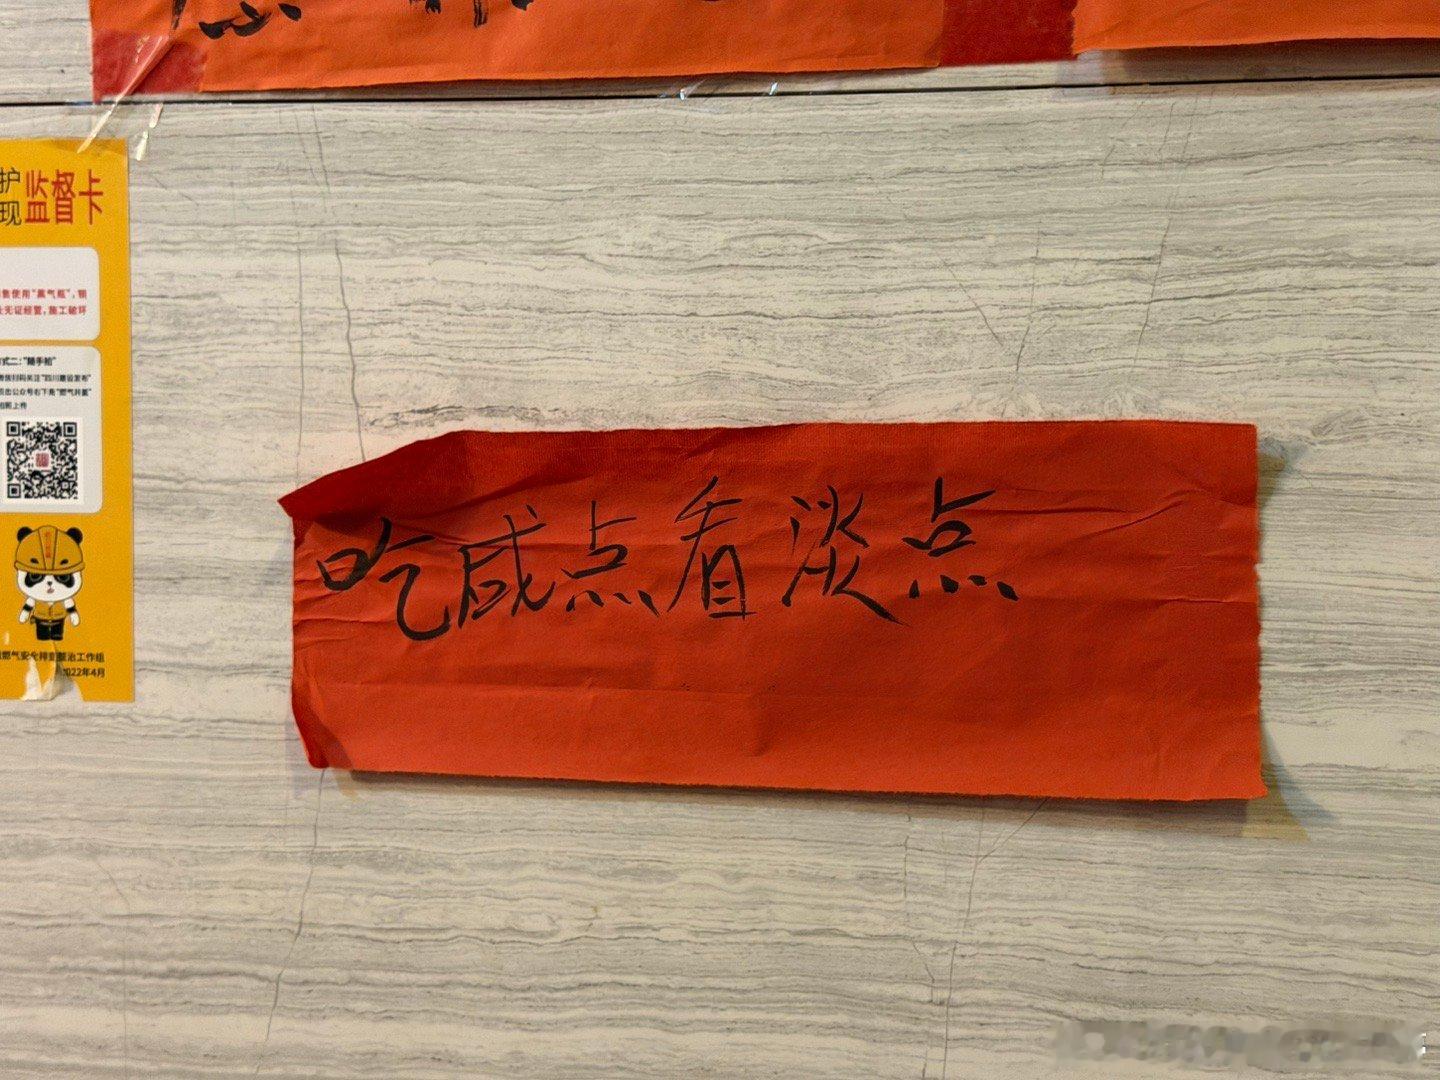 护
现
监督卡
售使用"黑气瓶",销
无证经营,施工破坏
式二:"随手拍"
扫码关注"四川建设发布"
公众号右下角"燃气共鉴"
上传
吃咸点看淡点
燃气安全排查整治工作组
2022年4月